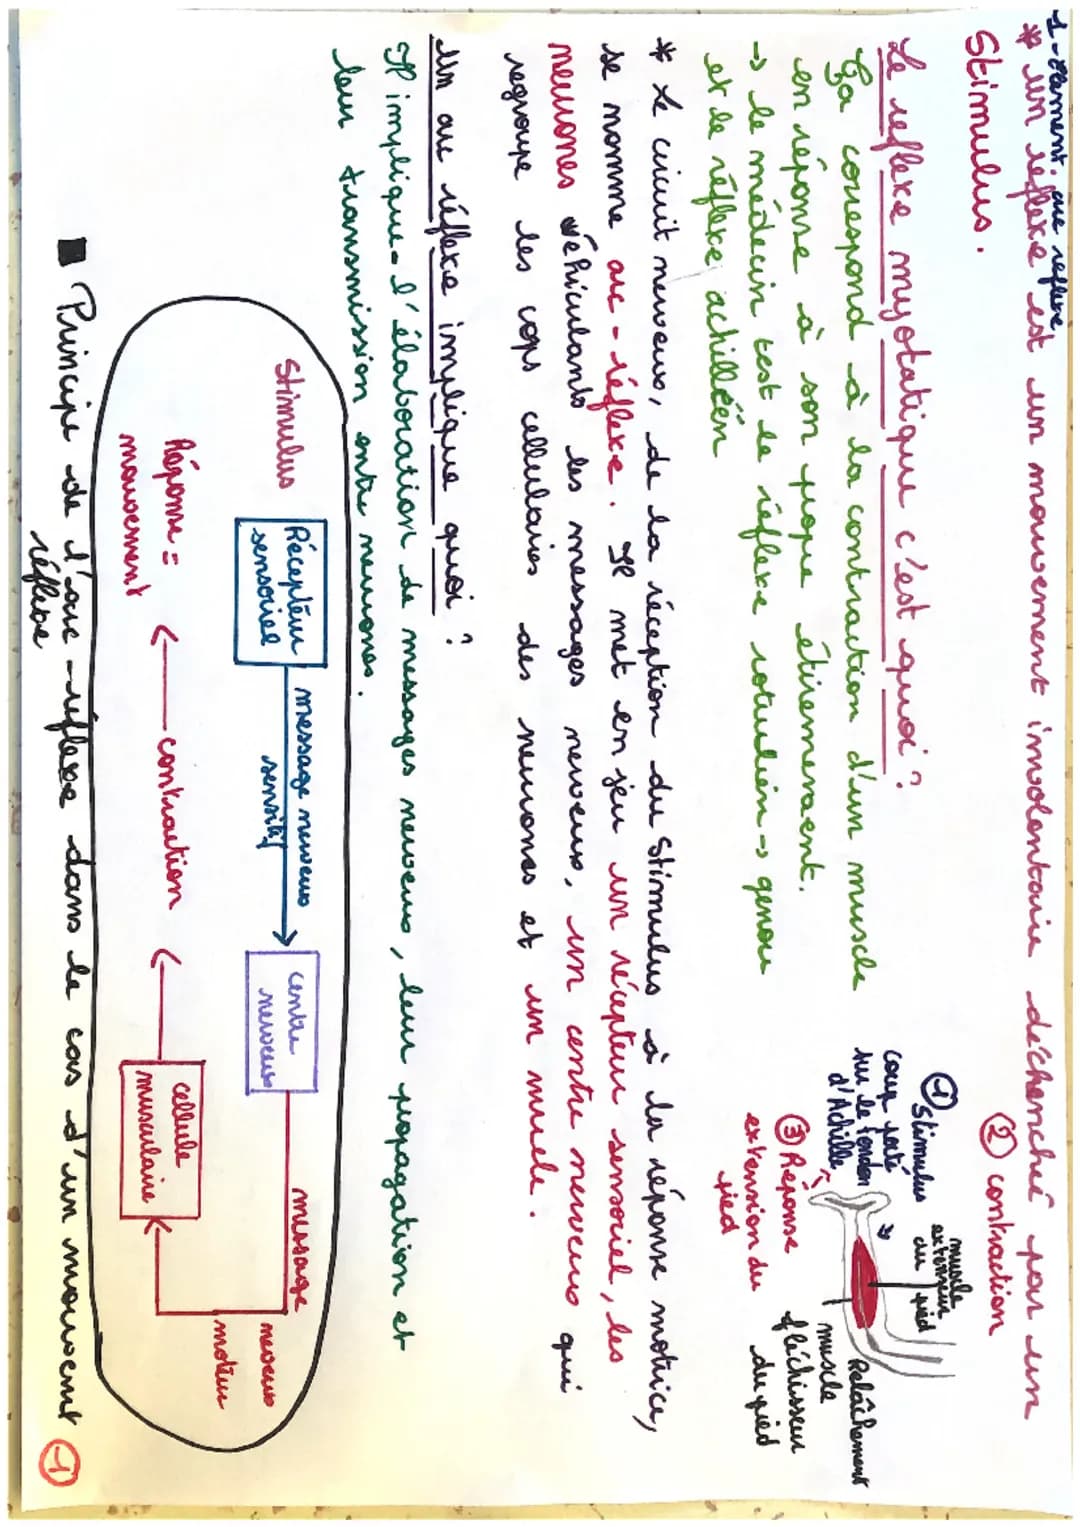 1-Element. arc reflexe
* Un reflexe est un mouvement involontaire déclenché par un
Stimulus.
Le reflexe myotatique c'est quoi ?
Ça correspond à la contraction d'un muscle
en réponse à son propre étirement.
→ le médecin test le réflexe rotulien → genou
et le réflexe achilléen
② contraction
① Stimulus
coup porté
sur le tendon
d'Achille
muscle
extenseur
du pied
③ Réponse
extension du
pied
Relâchement
muscle
fléchisseur
du pied
* Le circuit nerveux, de la réception du Stimulus à la réponse motrice,
se nomme arc-réflexe. Il met en jeu un récepteur sensoriel, les
neurones véhiculants les messages nerveux, un centre nerveux qui
regroupe les corps cellulaires des neurones et un muscle.
Un arc réflexe implique quoi ?
Il implique l'élaboration de messages nerveux, leur propagation et
leur transmission entre neurones.
Stimulus
Récepteur
sensoriel
message nerveux
sensitif
centre
nerveux
message
nerveux
moteur
cellule
musculaire
contraction
Réponse =
mouvement
■ Principe de l'arc-réflexe dans le cas d'un mouvement
réflexe
①